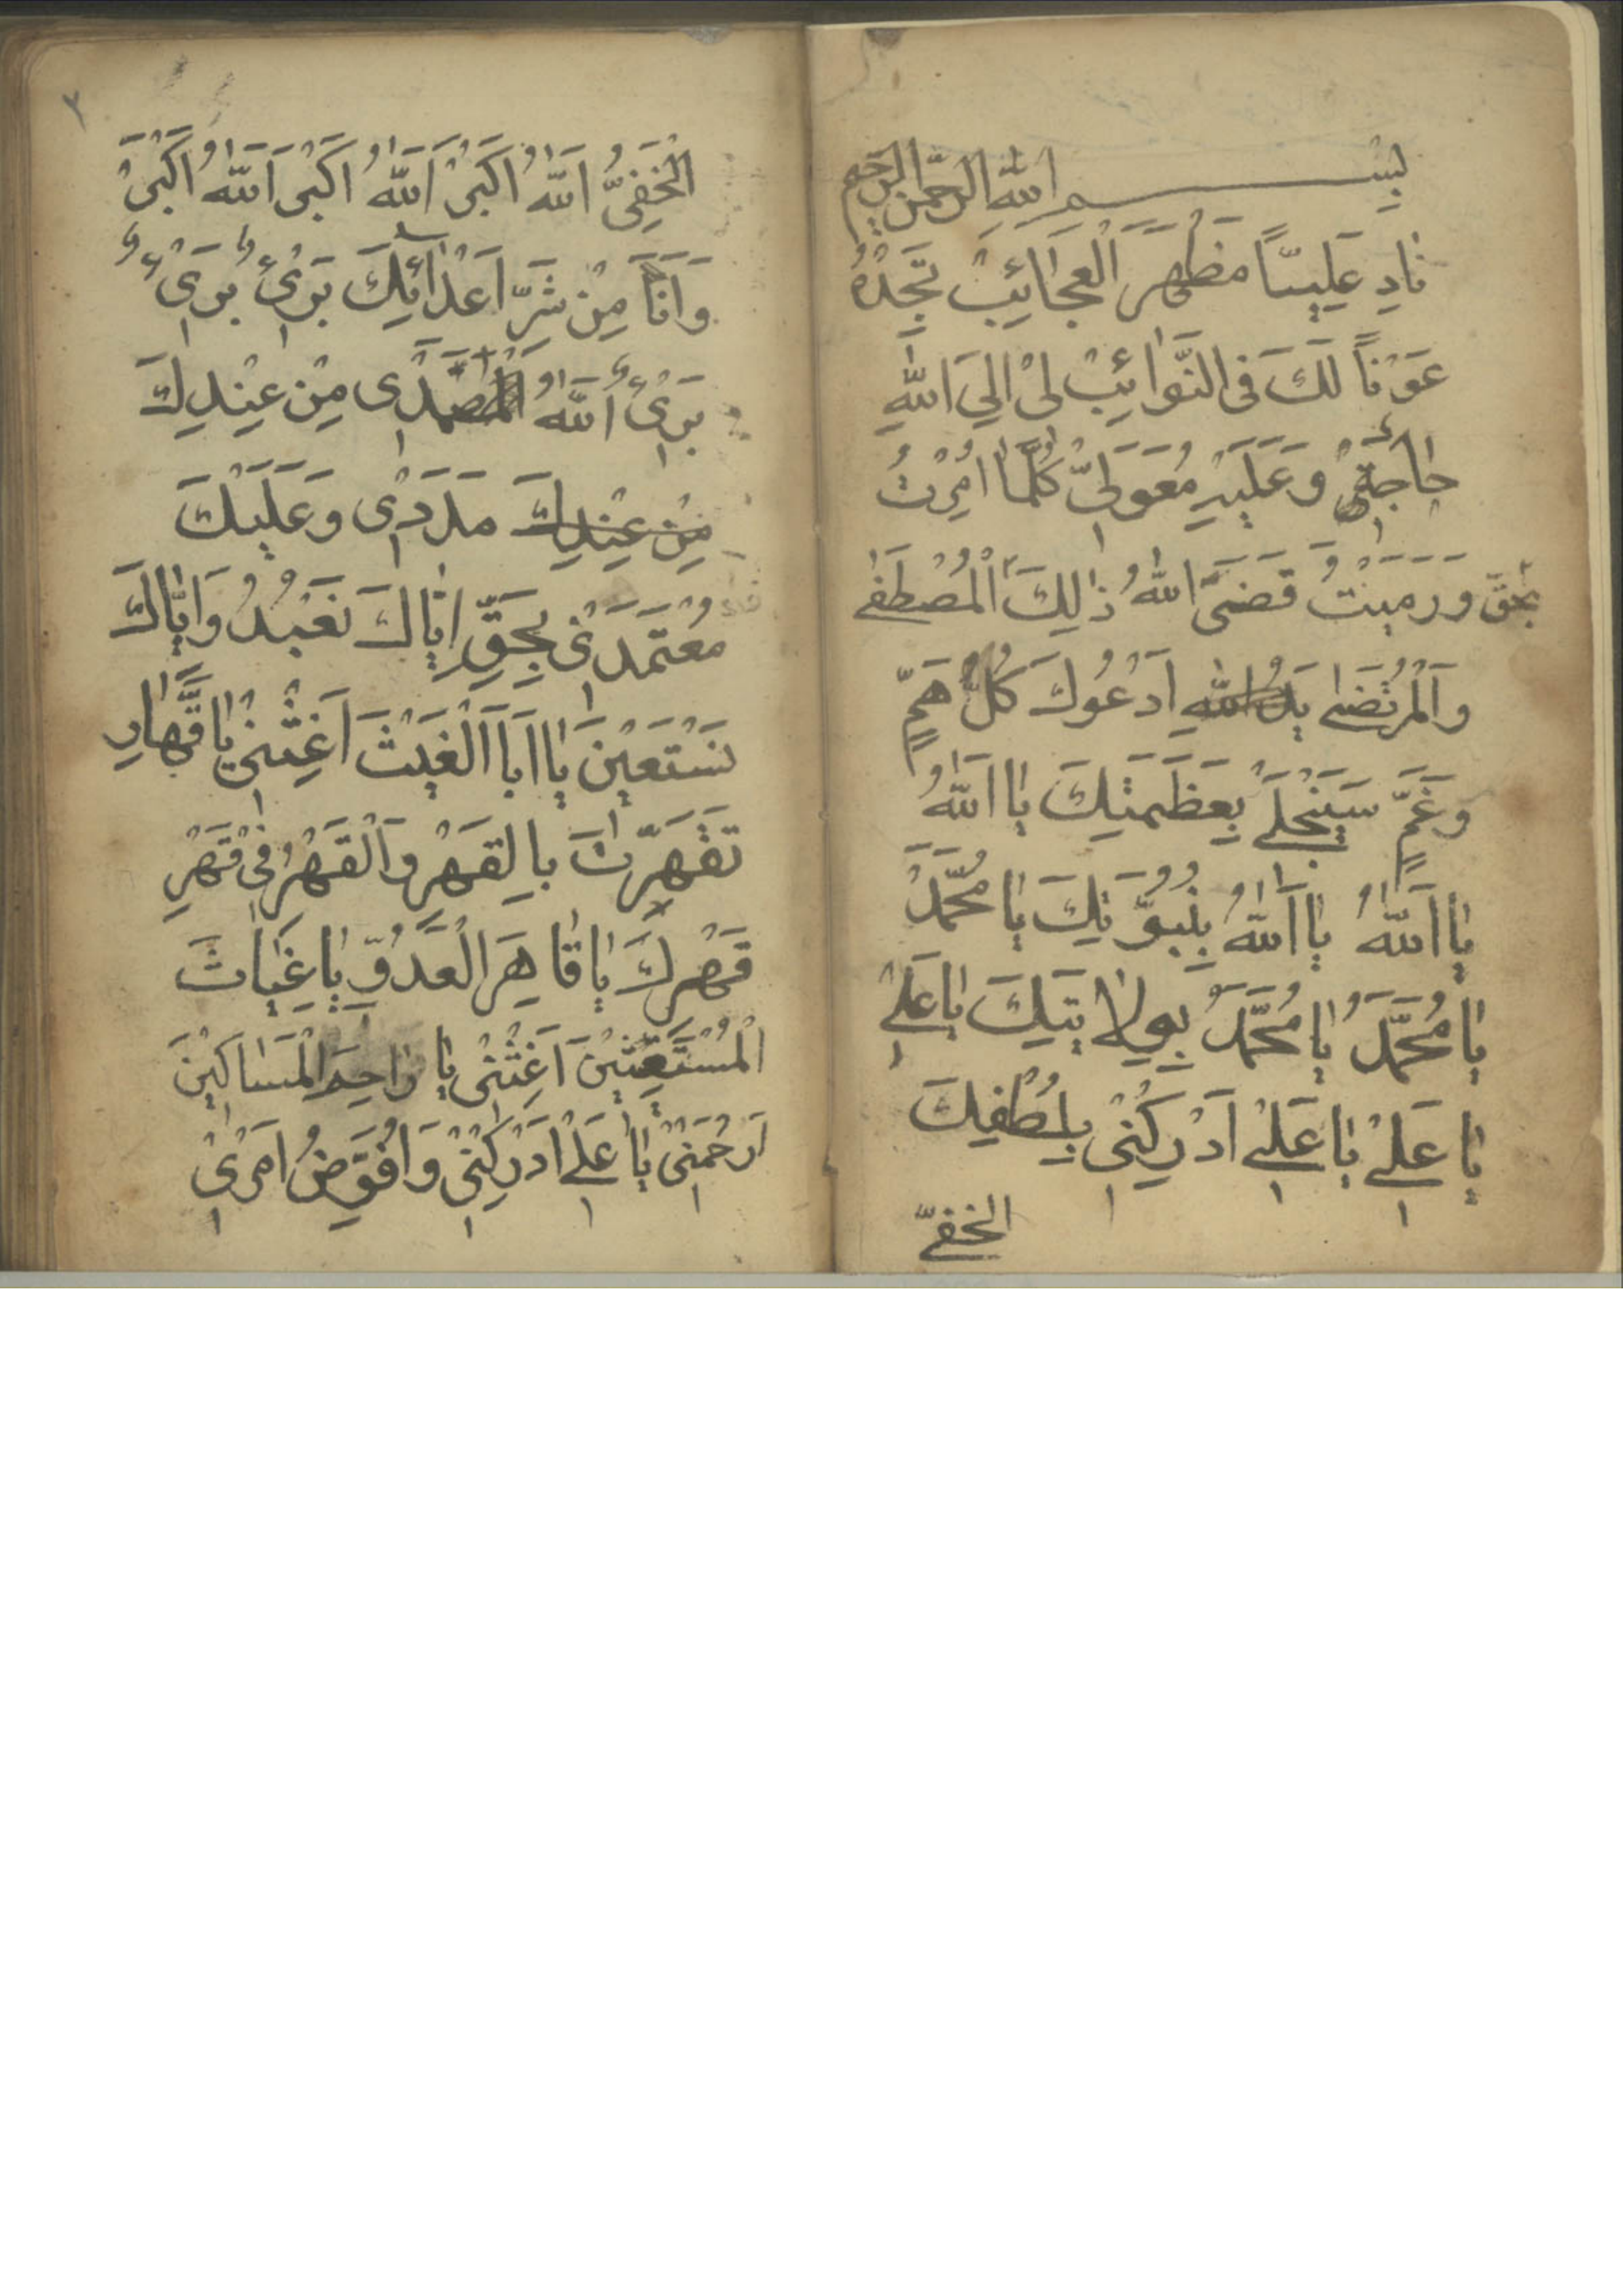 بِسْمِ اللهِ الرَّحْمٰنِ الرَّحِيمِ
نَادِ عَلِيًّا مَظْهَرَ الْعَجَائِبْ تَجِدْهُ
عَوْنًا لَكَ فِى النَّوَائِبْ لِىْ اِلَى اللهِ
حَاجَتِىْ وَعَلَيْهِ مُعَوَّلِىْ كُلَّمَا اَمَرْتُ
وَرَمَيْتُ قَضَى اللهُ ذٰلِكَ الْمُصْطَفٰى بحقّ
وَالْمُرْتَضٰى اَدْعُوكَ كُلُّ هَمٍّ
وَغَمٍّ سَيَنْجَلِى بِعَظَمَتِكَ يَا اَللهُ
يَا اَللهُ يَا اَللهُ بِنُبُوَّتِكَ يَا مُحَمَّدُ
يَا مُحَمَّدُ يَا مُحَمَّدُ بِوِلَايَتِكَ يَا عَلِىْ
يَا عَلِىْ يَا عَلِىْ اَدْرِكْنِىْ بِلُطْفِكَ
الخفىّ
٢
الْخَفِىُّ اَللهُ اَكْبَرْ اَللهُ اَكْبَرْ اَللهُ اَكْبَرْ
وَاَنَا مِنْ شَرِّ اَعْدَائِكَ بَرِىْءٌ بَرِىْءٌ
بَرِىْءٌ اَللهُ صَمَدِى مِنْ عِنْدِكَ
مِنْ عِنْدِكَ مَدَدِىْ وَعَلَيْكَ
مُعْتَمَدِىْ بِحَقِّ اِيَّاكَ نَعْبُدُ وَاِيَّاكَ
نَسْتَعِيْنَ يَا اَبَا الْغَيْثَ اَغِثْنِىْ يَا قَهَّارِ
تَقَهَّرْتَ بِالقَهْرِ وَالْقَهْرُ فِىْ قَهْرِ
قَهْرِكَ يَا قَاهِرَ الْعَدُوِّ يَا غِيَاثَ
الْمُسْتَغِيْثِيْنَ اَغِثْنِىْ يَا رَاحِمَ الْمَسَاكِيْنَ
اَرْحَمْنِىْ يَا عَلِىْ اَدْرِكْنِىْ وَاُفَوِّضُ اَمْرِىْ